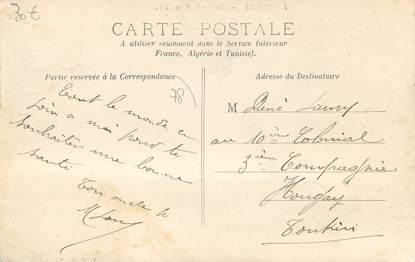 30€
CARTE POSTALE
A utiliser seulement dans le Service Intérieur
France, Algérie et Tunisie).
Partie réservée à la Correspondance
Adresse du Destinataire
78
Tout le monde en
à moi pour te
souhaiter une bonne
santé
Ton oncle
M René
au 10ème Colonial
3ième Compagnie
Hongay
Tonkin